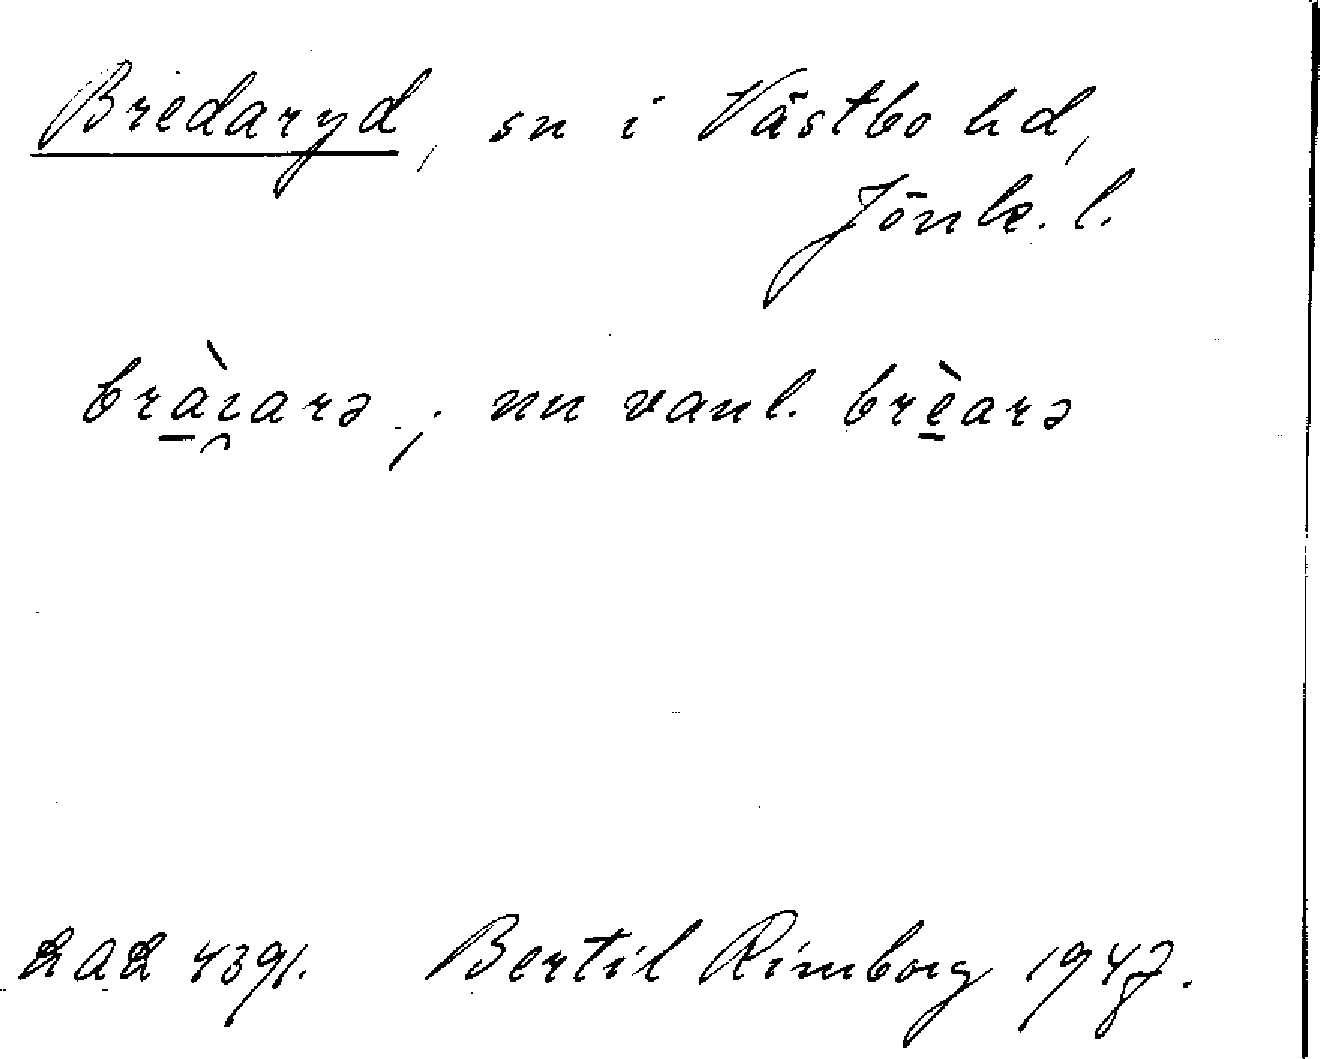 Bredaryd, sn i Västbo hd,
Jönk. l.
bràɪ̯arə; nu vanl. brèarə
LAL 4391. Bertil Rimborg 1947.